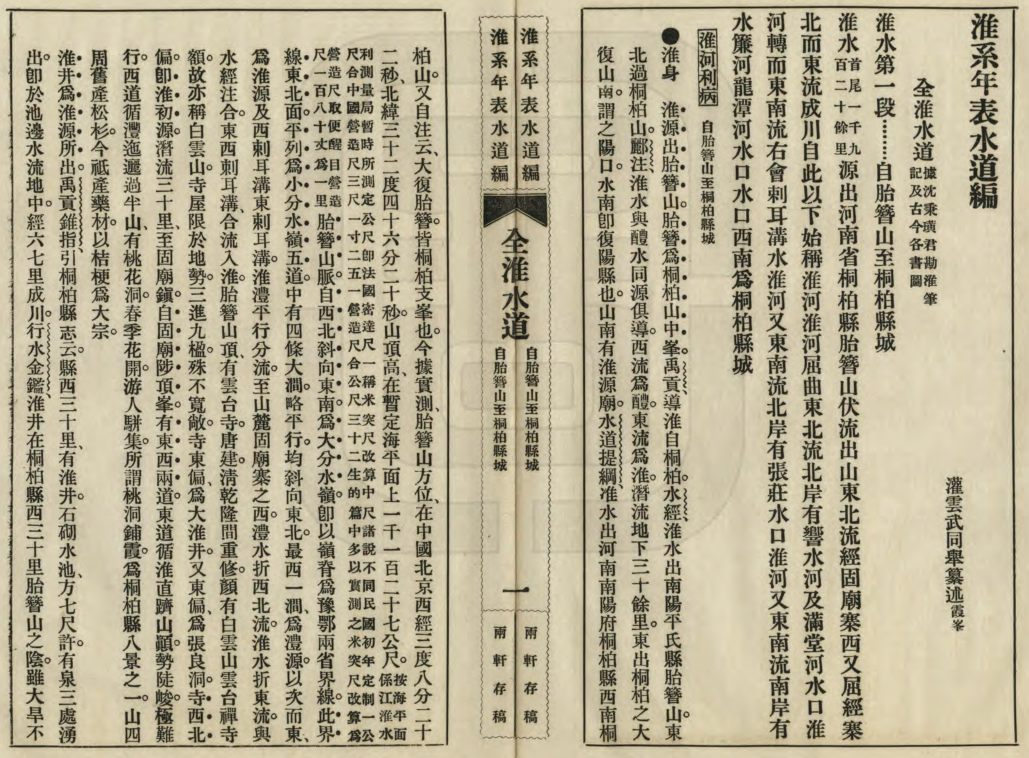 淮系年表水道編
灌雲武同舉纂述霞峯
全淮水道據沈秉璜君勘淮筆
記及古今各書圖
淮水第一段⋯⋯⋯自胎簪山至桐柏縣城
淮水首尾一千九
百二十餘里源出河南省桐柏縣胎簪山伏流出山東北流經固廟寨西又屈經寨
北而東流成川自此以下始稱淮河淮河屈曲東北流北岸有響水河及滿堂河水口淮
河轉而東南流右會剌耳溝水淮河又東南流北岸有張莊水口淮河又東南流南岸有
水簾河龍潭河水口水口西南爲桐柏縣城
淮河利病 自胎簪山至桐柏縣城
●淮身 淮源出胎簪山胎簪爲桐柏山中峯禹貢導淮自桐柏水經淮水出南陽平氏縣胎簪山東
北過桐柏山酈注淮水與醴水同源俱導西流爲醴東流爲淮潛流地下三十餘里東出桐柏之大
復山南謂之陽口水南卽復陽縣也山南有淮源廟水道提綱淮水出河南南陽府桐柏縣西南桐
淮系年表水道編
全淮水道
自胎簪山至桐柏縣城
一
兩軒存稿
淮系年表水道編
自胎簪山至桐柏縣城
兩軒存稿
柏山又自注云大復胎簪皆桐柏支峯也今據實測胎簪山方位在中國北京西經三度八分二十
二秒北緯三十二度四十六分二十秒山頂高在暫定海平面上一千一百二十七公尺按海平面
係江淮水
利測量局暫時所測定公尺卽法國密達尺一稱米突尺改算中尺諸說不同民國初年定制一公
尺合中國營造尺三尺一寸二五一營造尺合公尺三十二生的篇中多以實測之米突尺改算爲
營造尺取便醒目營造
尺一百八十丈爲一里胎簪山脈自西北斜向東南爲大分水嶺卽以嶺脊爲豫鄂兩省界線此界
線東北面平列爲小分水嶺五道中有四條大澗略平行均斜向東北最西一澗爲澧源以次而東
爲淮源及西剌耳溝東剌耳溝淮澧平行分流至山麓固廟寨之西澧水折西北流淮水折東流與
水經注合東西剌耳溝合流入淮胎簪山頂有雲台寺唐建淸乾隆間重修顏有白雲山雲台禪寺
額故亦稱白雲山寺屋限於地勢三進九楹殊不寬敞寺東偏爲大淮井又東偏爲張良洞寺西北
偏卽淮初源潛流三十里至固廟鎭自固廟陟頂峯有東西兩道東道循淮直躋山顚勢陡峻極難
行西道循澧迤邐過半山有桃花洞春季花開游人駢集所謂桃洞鋪霞爲桐柏縣八景之一山四
周舊產松杉今祇產藥材以桔梗爲大宗
淮井爲淮源所出禹貢錐指引桐柏縣志云縣西三十里有淮井石砌水池方七尺許有泉三處湧
出卽於池邊水流地中經六七里成川行水金鑑淮井在桐柏縣西三十里胎簪山之陰雖大旱不